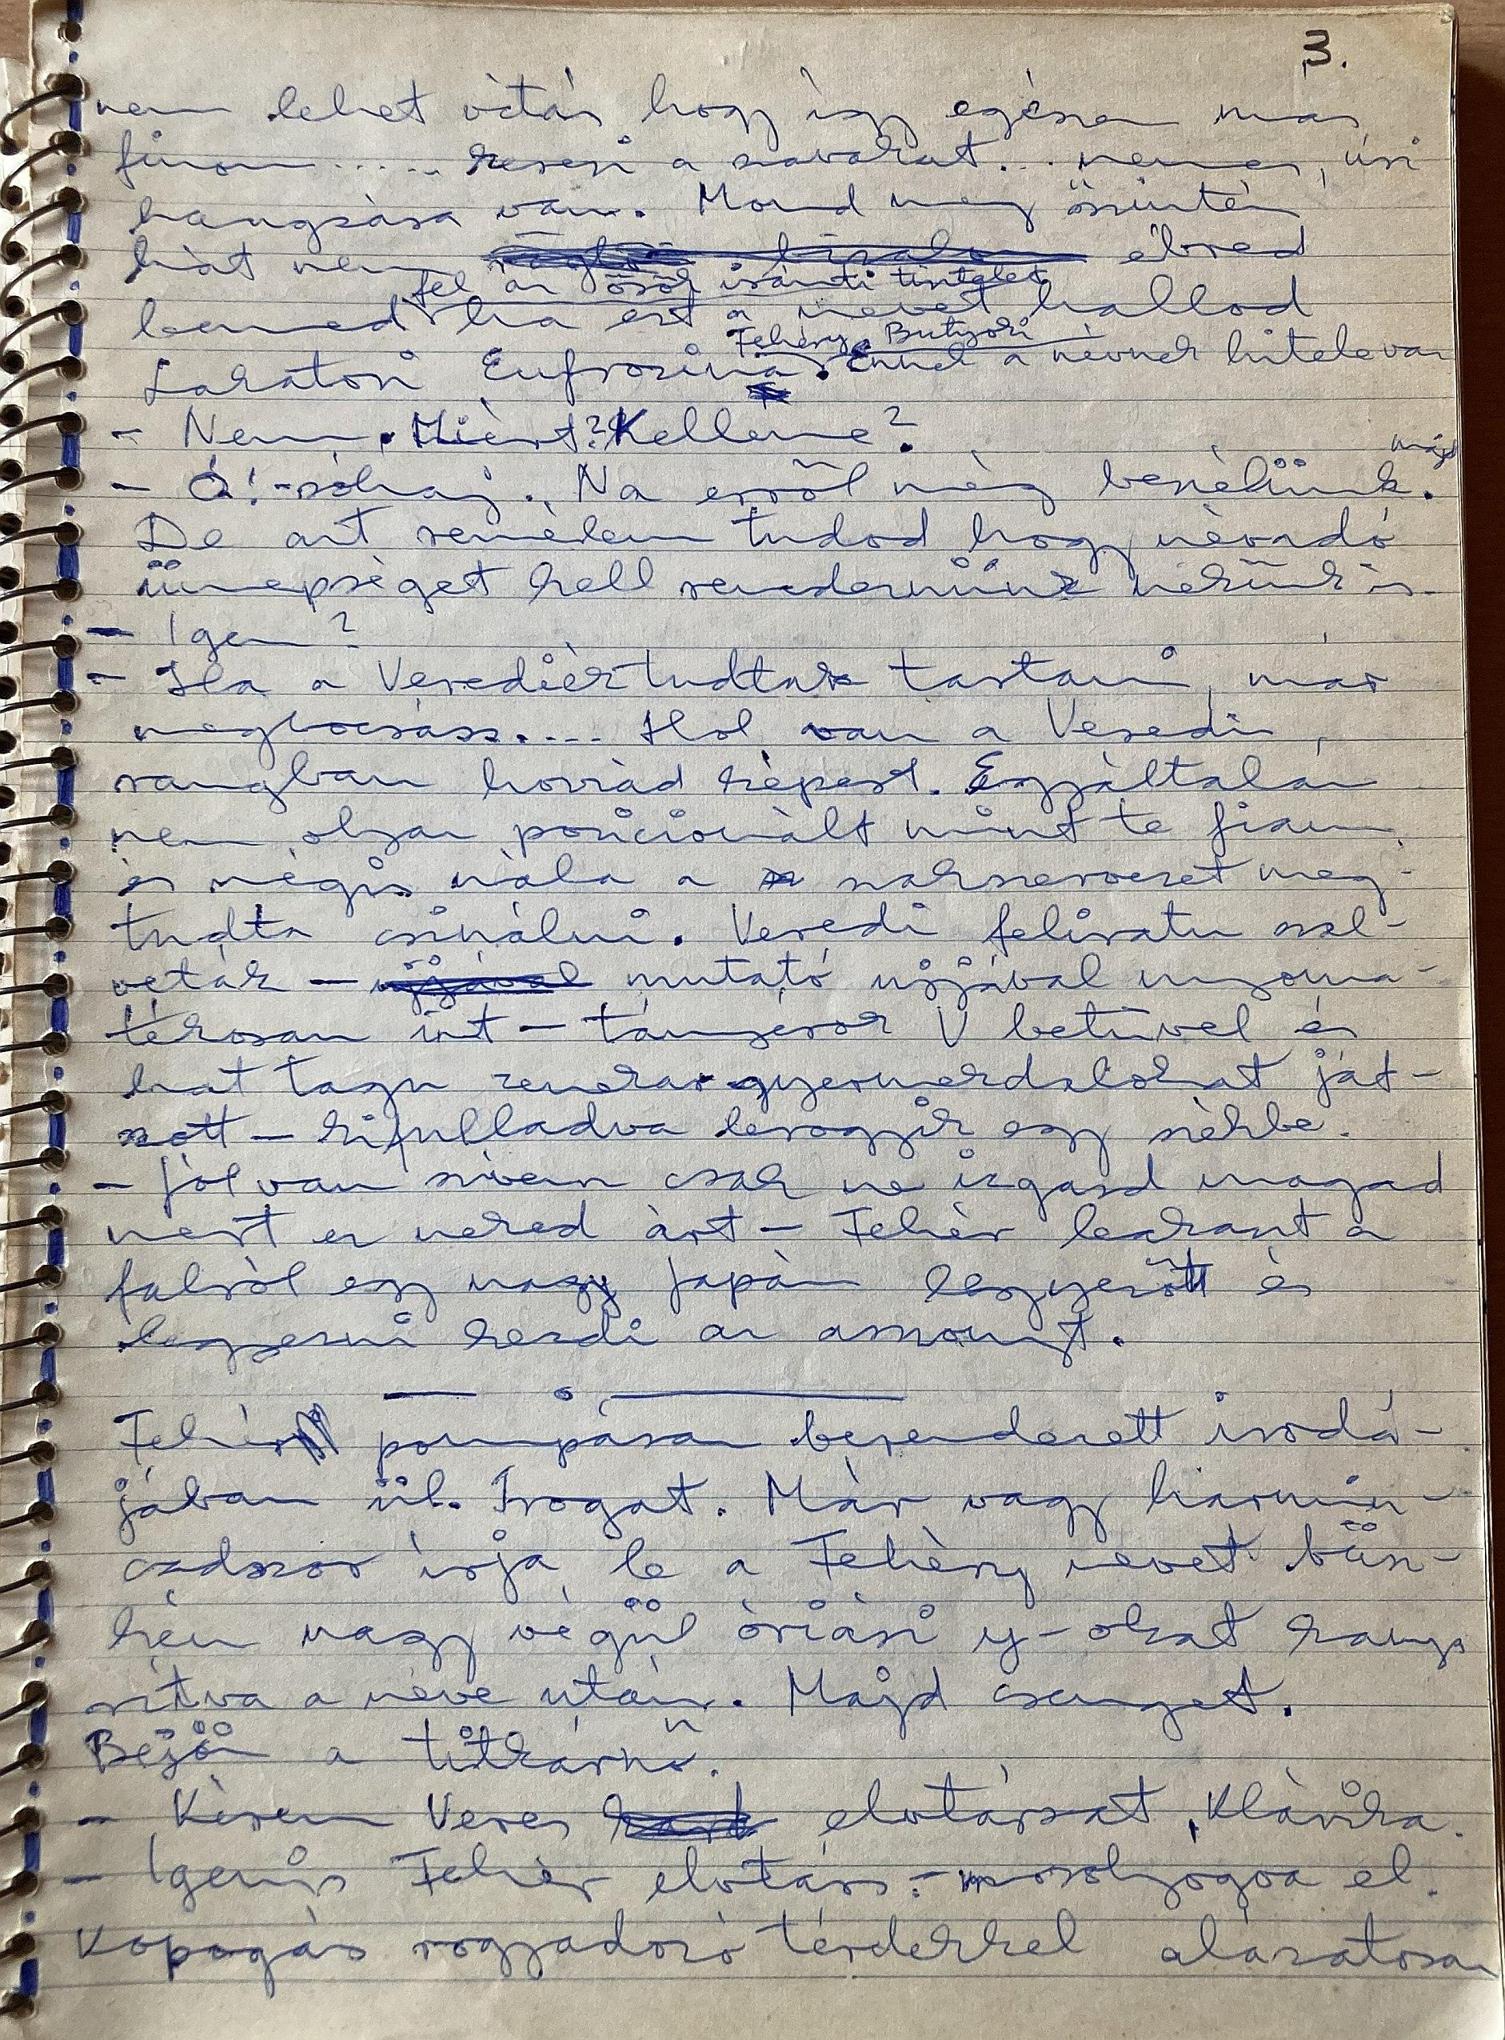 3.
nem lehet vitás hogy így egészen más
finom ..... kezesi a szavakat... nemes, úri
hangzása van. Mond meg öszintén
hát nem ébred
fel az ősök iránti tisztelet
benned ha ezt a nevet hallod
Fehéry Butyori
Lakatosi Eufrozina. Ennek a névnek hitele van
- Nem. Miért? Kellene?
- Ó! - sóhaj. Na erről még beszélünk. majd
De azt remélem tudod hogy névadó
ünnepséget kell rendeznünk nekünk is.
- Igen?
- Ha a Veredíék tudtak tartani, már
megbocsáss.... Hol van a Veredi,
rangban hozzád képest. Egyáltalán
nem olyan pozicionált mint te fiam,
és mégis nála a szakszervezet meg-
tudta csinálni. Veredi feliratu szal-
véták - ujjával mutató ujjával nyoma-
tékosan int - tányérok V betűvel és
hat tagu zenekar gyermekdalokat ját-
szott - kifulladva lerogyik egy székbe.
- Jól van szívem csak ne izgasd magad
mert ez neked árt - Fehér leakaszt a
falról egy nagy japán legyezőtt és
legyezni kezdi az asszonyt.
Fehér pompásan berendezett irodá-
jában ül. Irogat. Már vagy harmin-
cadszor írja le a Fehéry nevet büsz-
kén nagy végül óriási y-okat kanya
rítva a neve után. Majd csenget.
Bejön a titkárnő.
- Kérem Veres elvtársat, Klárika.
- Igenis Fehér elvtárs. - mosolyogva el.
Kopogás rogyadozó térdekkel alázatosan